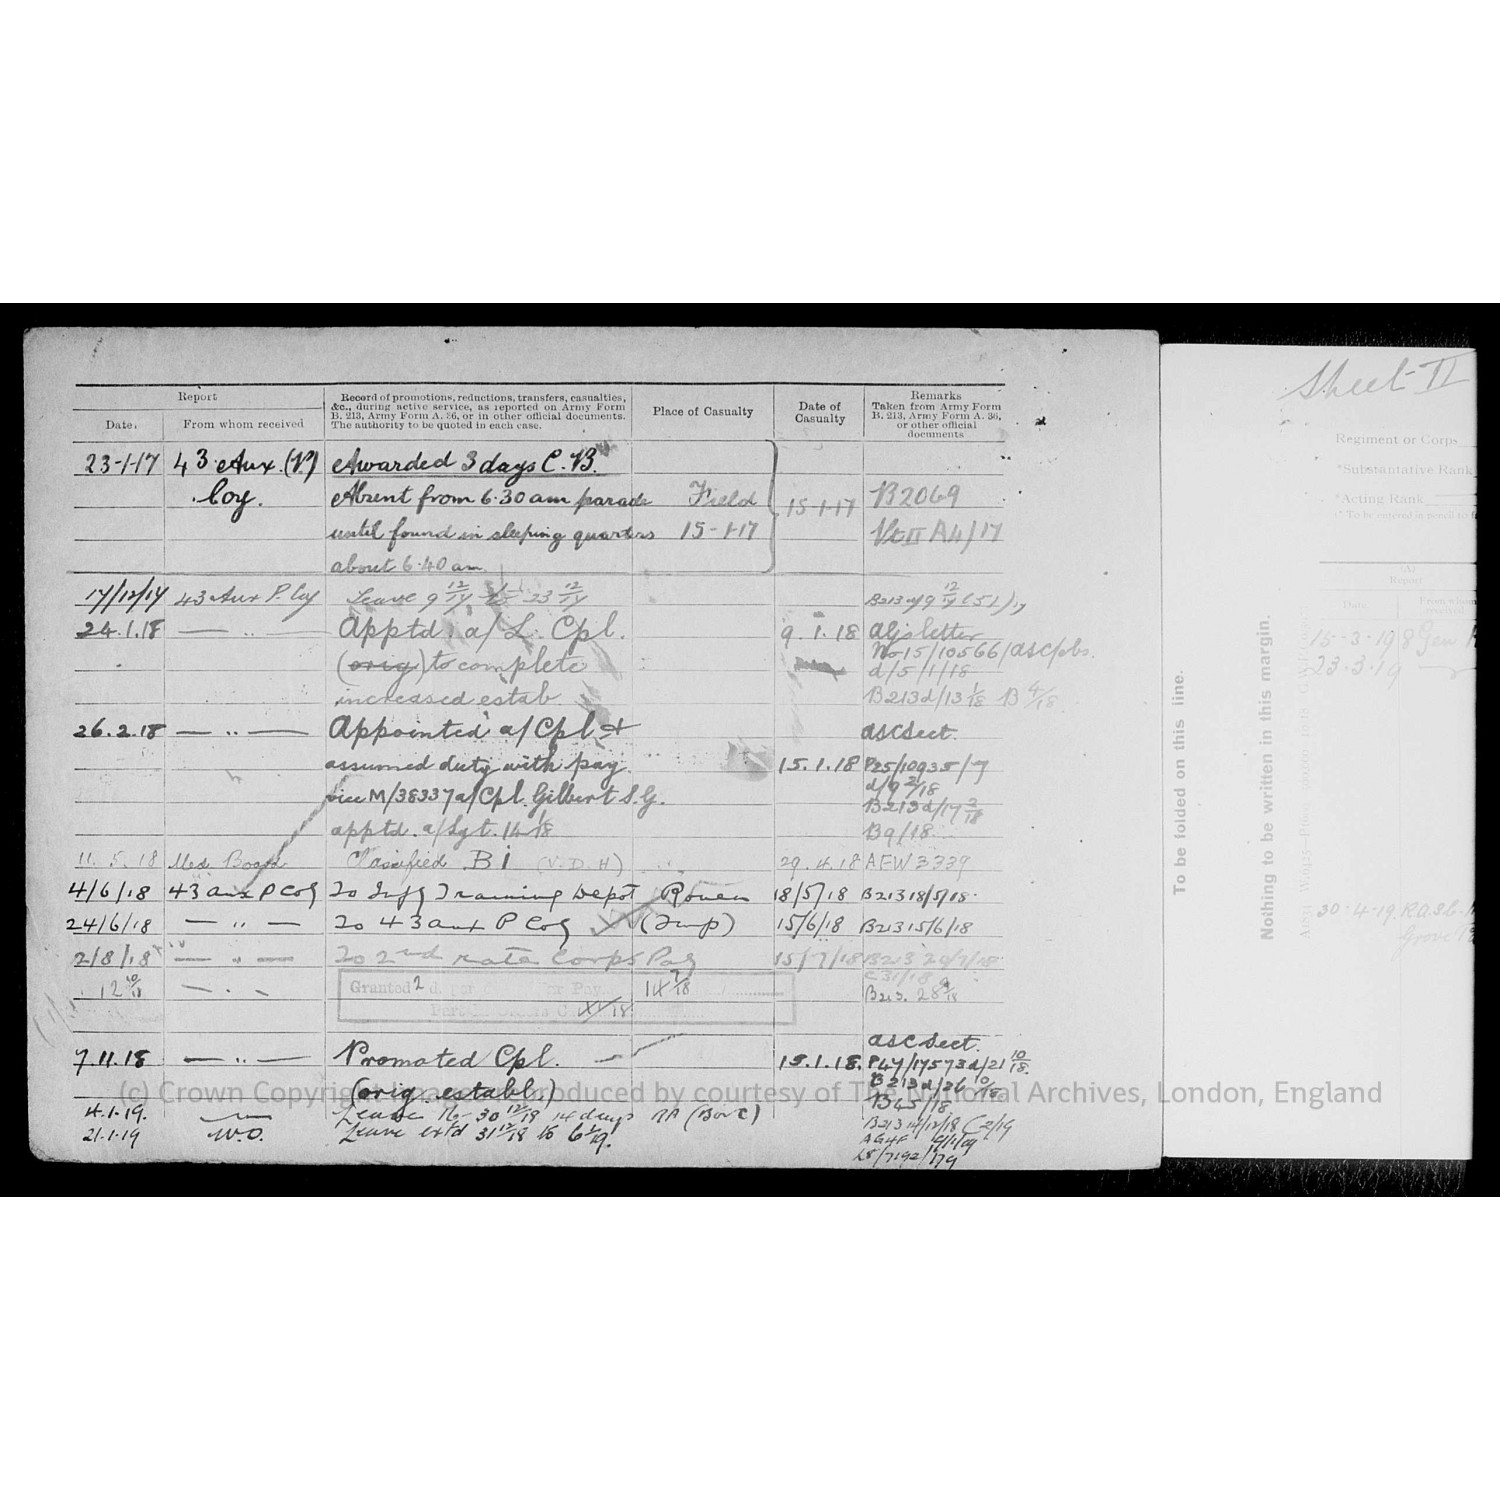 Report
Date.
From whom received
Record of promotions, reductions, transfers, casualties,
&c., during active service, as reported on Army Form
B. 213, Army Form A. 36, or in other official documents.
The authority to be quoted in each case.
Place of Casualty
Date of
Casualty
Remarks
Taken from Army Form
B. 213, Army Form A. 36,
or other official
documents
23-1-17 43 Aux. (P) Awarded 3 days C.B.
Coy. Absent from 6.30 am parade Field 15-1-17 B2069
until found in sleeping quarters 15-1-17 A4/17
about 6.40 am.
17/12/17 43 Aux P. Coy Leave 9 12/17 to 23 12/17 B213 9 12/17
24.1.18 — " — Apptd a/L. Cpl. 9.1.18 letter
(orig) to complete No 15/10566/ASC/obs.
d/5/1/18
increased estab. B213d/13 1/18 B 4/18
26.2.18 — " — Appointed a/Cpl & ASC Sect.
assumed duty with pay 15.1.18 P25/10935/7
d/9 2/18
vice M/38337 a/Cpl. Gilbert S.G. B213d/17 2/18
apptd. a/Sgt. 14 1/18 B9/18
11.5.18 Med Board Classified B1 (V.D.H) 29.4.18 AFW 3339
4/6/18 43 aux P Coy To Inf Training Depot Rouen 18/5/18 B213 18/5/18
24/6/18 — " — To 43 aux P Coy (Temp) 15/6/18 B213 15/6/18
2/8/18 — " — To 2nd rate Corps Pay 15/7/18 B213 20/7/18
C31/18
12 10/18 — " — Granted 2d. per Pay 14 7/18 B213. 28 9/18
ASC Sect.
7.11.18 — " — Promoted Cpl. 15.1.18. P47/17573d/21 10/18.
(orig. establ.) B213d/26 10/18
B45/18
4.1.19. Leave 30 12/18 14 days (Bou) B213 14/12/18
21.1.19 W.O. Leave ext'd 31 12/18 to 6 1/19.
(c) Crown Copyright Images reproduced by courtesy of The National Archives, London, England
To be folded on this line.
Nothing to be written in this margin.
Sheet II
Regiment or Corps
*Substantative Rank
*Acting Rank
(A)
Report
Date
From whom
received
15-3-19 8 Gen
23.3.19
30-4-19. R.A.S.C.
Grove